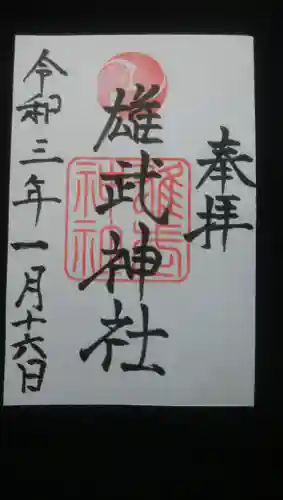 奉拝
雄武神社
令和三年一月十六日
雄武神社